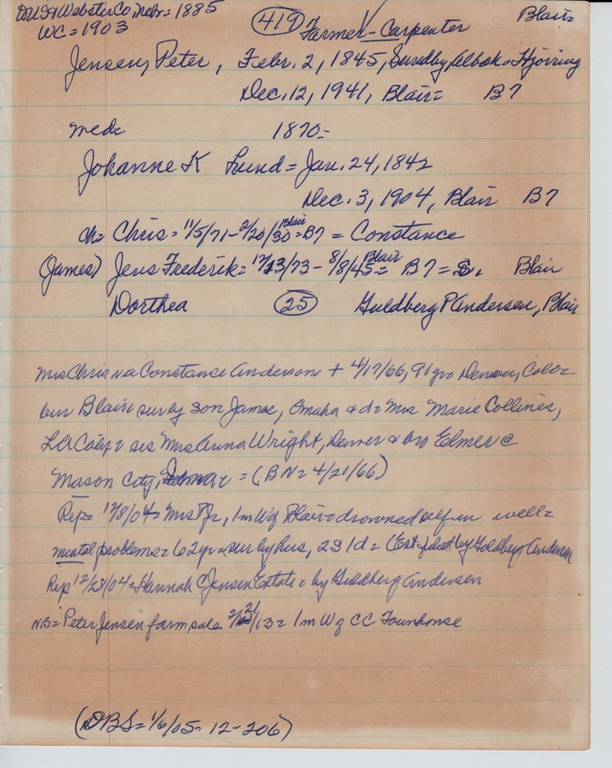 Webster Co, Nebr = 1885 (419) Farmer - Carpenter Blair =
WC = 1903
Jensen, Peter, Febr. 2, 1845, Hjørring
Dec. 12, 1941, Blair = B7
med = 1870 =
Johanne K Lund = Jan. 24, 1842
Dec. 3, 1904, Blair B7
ch = Chris = 11/5/71 - 2/20/30 = Blair B7 = Constance
(James) Jens Frederik = 12/13/73 - 8/8/45 = Blair B7 = S. Blair
Dorthea (25) Guldberg P Andersen, Blair
Mrs Chris nee Constance Anderson + 4/17/66, 91 yrs Denver, Colo =
bur Blair = surv by son James, Omaha & d = Mrs Marie Collines,
LA Calif = sis Mrs Anna Wright, Denver & bro Elmer @
Mason City, = (BN = 4/21/66)
Rep = 12/8/04 = Mrs PJ, 1m W of Blair = drowned self in well =
mental problems = 62 yrs = sur by hus, 2s 1d = (Est filed by Goldberg Andersen
Rep 12/28/04 = Hannah C Jensen Estate = by Guldberg Andersen
NB = Peter Jensen farm sale /13 = 1m W of CC Townhouse
(DBS = 1/6/05 - 12-206)